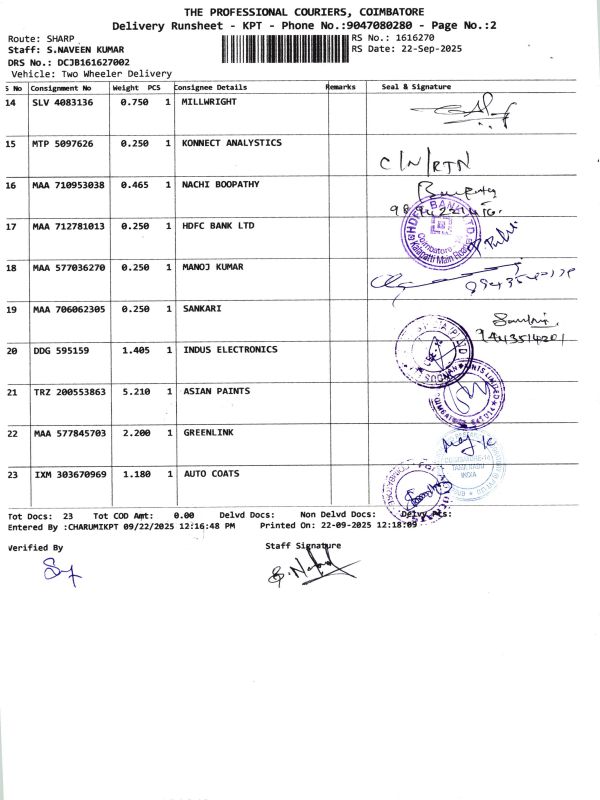 THE PROFESSIONAL COURIERS, COIMBATORE
Delivery Runsheet - KPT - Phone No.:9047080280 - Page No.:2
Route: SHARP RS No.: 1616270
Staff: S.NAVEEN KUMAR RS Date: 22-Sep-2025
DRS No.: DCJB161627002
Vehicle: Two Wheeler Delivery
S No Consignment No Weight PCS Consignee Details Remarks Seal & Signature
14 SLV 4083136 0.750 1 MILLWRIGHT
15 MTP 5097626 0.250 1 KONNECT ANALYSTICS
C/N/RTN
16 MAA 710953038 0.465 1 NACHI BOOPATHY
17 MAA 712781013 0.250 1 HDFC BANK LTD
HDFC BANK LTD
Coimbatore
Kalapatti Main Road
18 MAA 577036270 0.250 1 MANOJ KUMAR
19 MAA 706062305 0.250 1 SANKARI
9443514201
20 DDG 595159 1.405 1 INDUS ELECTRONICS
21 TRZ 200553863 5.210 1 ASIAN PAINTS
22 MAA 577845703 2.200 1 GREENLINK
TAMILNADU
INDIA
23 IXM 303670969 1.180 1 AUTO COATS
Tot Docs: 23 Tot COD Amt: 0.00 Delvd Docs: Non Delvd Docs: Delvy Ats:
Entered By :CHARUMIKPT 09/22/2025 12:16:48 PM Printed On: 22-09-2025 12:18:09
Verified By Staff Signature